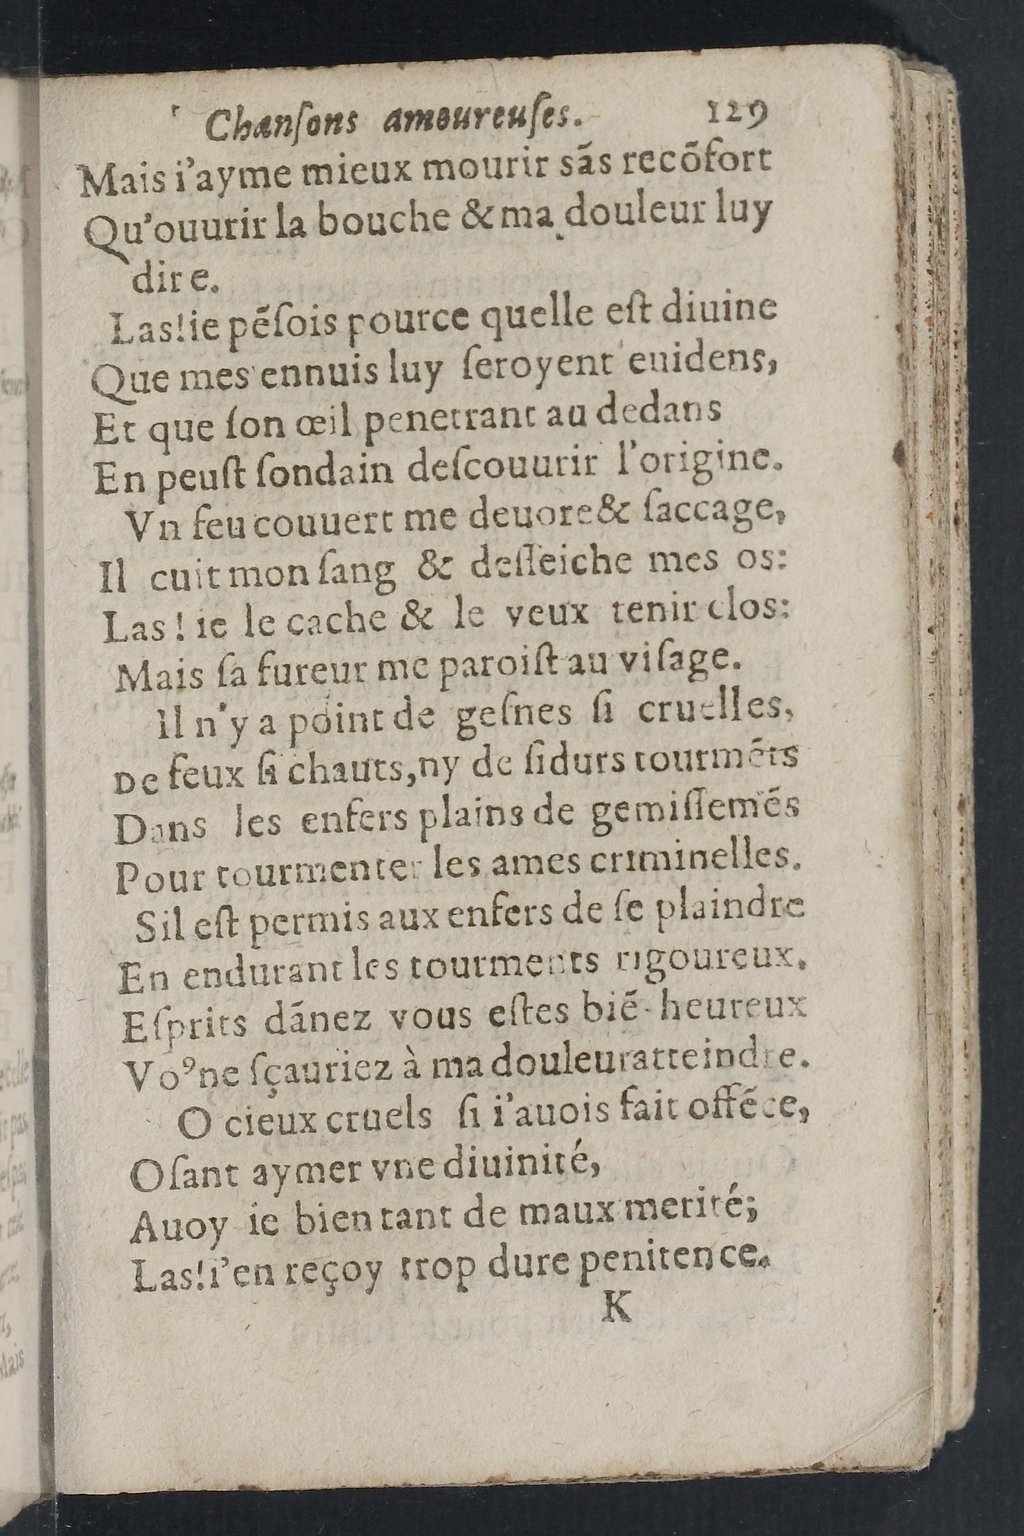 Chanſons amoureuſes. 129
Mais i'ayme mieux mourir sãs recõfort
Qu'ouurir la bouche & ma douleur luy
dire.
Las! ie pẽſois pource quelle eſt diuine
Que mes ennuis luy ſeroyent euidens,
Et que ſon œil penetrant au dedans
En peuſt ſondain deſcouurir l'origine.
Vn feu couuert me deuore & ſaccage,
Il cuit mon ſang & deſſeiche mes os:
Las! ie le cache & le veux tenir clos:
Mais ſa fureur me paroiſt au viſage.
Il n'y a point de geſnes ſi cruelles,
De feux ſi chauts, ny de ſi durs tourmẽts
Dans les enfers plains de gemiſſemẽs
Pour tourmenter les ames criminelles.
Sil eſt permis aux enfers de ſe plaindre
En endurant les tourments rigoureux.
Eſprits dãnez vous eſtes biẽ-heureux
Voꝰ ne ſçauriez à ma douleur atteindre.
O cieux cruels ſi i'auois fait offẽce,
Oſant aymer vne diuinité,
Auoy ie bien tant de maux merité;
Las! i'en reçoy trop dure penitence.
K